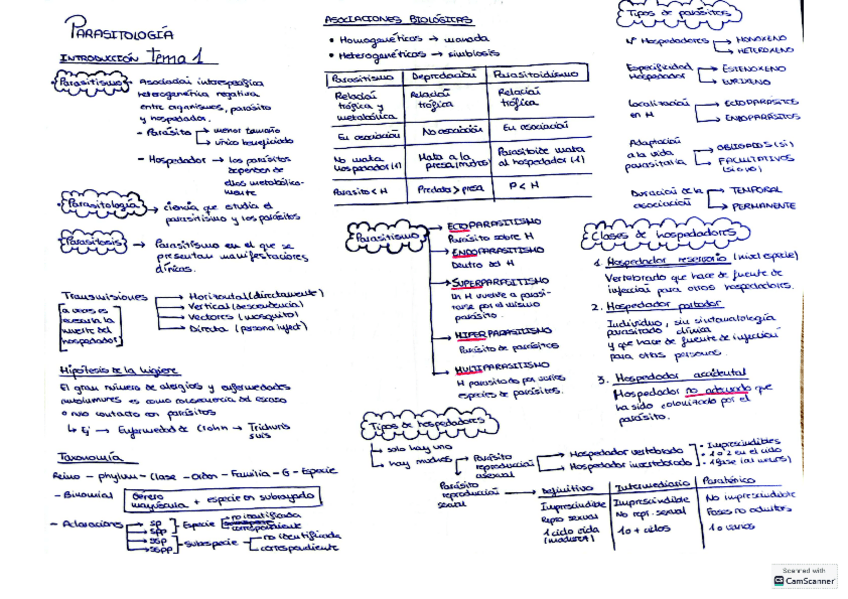 PARASITOLOGÍA
INTRODUCCIÓN tema 1
Parasitismo → Asociación interespecífica
heterogenética negativa
entre organismos, parásito
y hospedador.
- Parásito → menor tamaño
→ único beneficiado
- Hospedador → los parásitos
dependen de
ellos metabólica-
mente
Parasitología → ciencia que estudia el
parasitismo y los parásitos
Parasitosis → Parasitismo en el que se
presentan manifestaciones
clínicas.
Transmisiones → Horizontal (directamente)
→ Vertical (descendencia)
→ Vectores (mosquito)
→ Directa (persona infect)
[a veces es
necesaria la
muerte del
hospedador]
Hipótesis de la higiene
El gran número de alergias y enfermedades
autoinmunes es como consecuencia del escaso
o nulo contacto con parásitos
↳ Ej → Enfermedad de Crohn → Trichuris
suis
Taxonomía
Reino - phylum - Clase - Orden - Familia - G - Especie
- Binomial Género mayúscula + especie en subrayado
- Aclaraciones → sp
→ spp
→ ssp
→ sspp
Especie no identificada
correspondiente
Subespecie no identificada
correspondiente
ASOCIACIONES BIOLÓGICAS
• Homogenéticas → manada
• Heterogenéticas → simbiosis
Parasitismo | Depredación | Parasitoidismo
Relación trófica y metabólica | Relación trófica | Relación trófica
En asociación | No asociación | En asociación
No mata hospedador (1) | Mata a la presa (muchos) | Parasitoide mata al hospedador (1)
Parásito < H | Predator > presa | P < H
Parasitismo
→ ECTOPARASITISMO
Parásito sobre H
→ ENDOPARASITISMO
Dentro del H
→ SUPERPARASITISMO
Un H vuelve a parasi-
tarse por el mismo
parásito.
→ HIPERPARASITISMO
Parásito de parásitos
→ MULTIPARASITISMO
H parasitado por varias
especies de parásitos.
Tipos de hospedadores
→ solo hay uno
→ hay muchos
Parásito
reproducción
asexual
→ Hospedador vertebrado
→ Hospedador invertebrado
• Imprescindibles
• 1 o 2 en el ciclo
• 1 fase (al menos)
Parásito
reproducción
sexual
Definitivo | Intermediario | Paraténico
Imprescindible | Imprescindible | No imprescindible
Repro sexual | No repr. sexual | Fases no adultas
1 ciclo vida (madurez) | 1 o + ciclos | 1 o varios
Tipos de parásitos
Nº Hospedadores → MONOXENO
→ HETEROXENO
Especificidad
Hospedador → ESTENOXENO
→ EURIXENO
Localización
en H → ECTOPARÁSITOS
→ ENDOPARÁSITOS
Adaptación
a la vida
parasitaria → OBLIGADOS (si)
→ FACULTATIVOS
(si o no)
Duración de la
asociación → TEMPORAL
→ PERMANENTE
Clases de hospedadores
1. Hospedador reservorio (nivel especie)
Vertebrado que hace de fuente de
infección para otros hospedadores.
2. Hospedador portador
Individuo, sin sintomatología
parasitado clínica
y que hace de fuente de infección
para otras personas.
3. Hospedador accidental
Hospedador no adecuado que
ha sido colonizado por el
parásito.
Scanned with
CamScanner